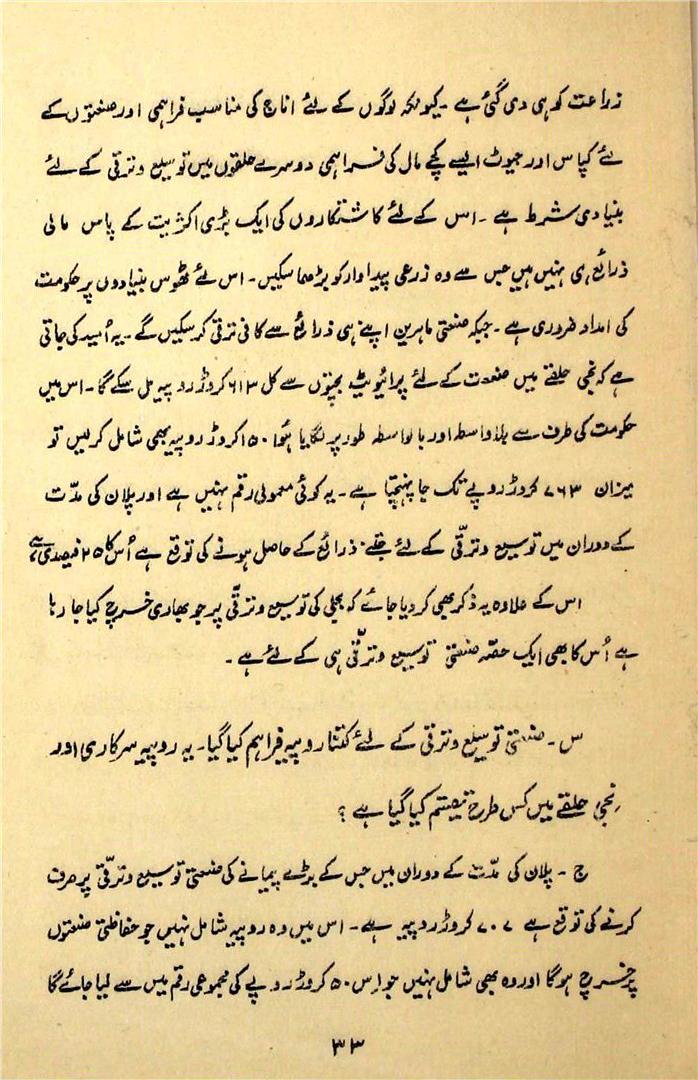 زراعت کو ہی دی گئی ہے ۔ کیونکہ لوگوں کے لئے اناج کی مناسب فراہمی اور صنعتوں کے
لئے کپاس اور جیوٹ ایسے کچے مال کی فراہمی دوسرے حلقوں میں توسیع و ترقی کے لئے
بنیادی شرط ہے ۔ اس کے لئے کاشتکاروں کی ایک بڑی اکثریت کے پاس مالی
ذرائع ہی نہیں ہیں جس سے وہ زرعی پیداوار کو بڑھا سکیں ۔ اس لئے ٹھوس بنیادوں پر حکومت
کی امداد ضروری ہے ۔ جبکہ صنعتی ماہرین اپنے ہی ذرائع سے کافی ترقی کر سکیں گے ۔ یہ اُمید کی جاتی
ہے کہ نجی حلقے میں صنعت کے لئے پرائیویٹ بچتوں سے کل ۶۱۳ کروڑ روپیہ مل سکے گا ۔ اس میں
حکومت کی طرف سے بلاواسطہ اور بالواسطہ طور پر لگایا ہُوا ۱۵۰ کروڑ روپیہ بھی شامل کر لیں تو
میزان ۷۶۳ کروڑ روپے تک جا پہنچتا ہے ۔ یہ کوئی معمولی رقم نہیں ہے اور پلان کی مدّت
کے دوران میں توسیع و ترقّی کے لئے جتنے ذرائع کے حاصل ہونے کی توقع ہے اُس کا ۲۵ فیصدی ہے
اس کے علاوہ یہ ذکر بھی کر دیا جائے کہ بجلی کی توسیع و ترقّی پر جو بھاری خرچ کیا جا رہا
ہے اُس کا بھی ایک حصّہ صنعتی توسیع و ترقّی ہی کے لئے ہے ۔
س ۔ صنعتی توسیع و ترقی کے لئے کتنا روپیہ فراہم کیا گیا ۔ یہ روپیہ سرکاری اور
نجی حلقے میں کس طرح تقسیم کیا گیا ہے ؟
ج ۔ پلان کی مدّت کے دوران میں جس کے بڑے پیمانے کی صنعتی توسیع و ترقّی پر صرف
کرنے کی توقع ہے ۷۰۷ کروڑ روپیہ ہے ۔ اس میں وہ روپیہ شامل نہیں جو حفاظتی صنعتوں
پر خرچ ہوگا اور وہ بھی شامل نہیں جو اِس ۵۰ کروڑ روپے کی مجموعی رقم میں سے لیا جائے گا
۳۳